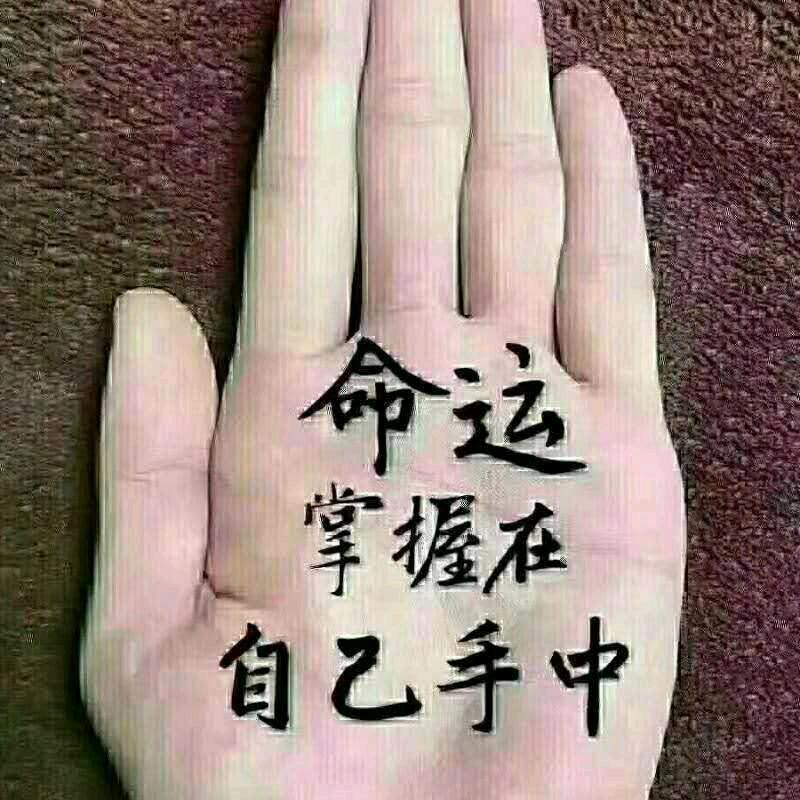 命运
掌握在
自己手中